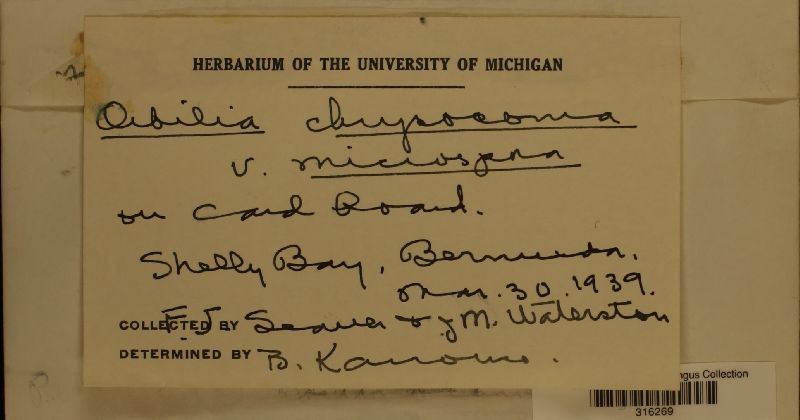 HERBARIUM OF THE UNIVERSITY OF MICHIGAN
Orbilia chrysocoma
v. microspora
on Card Board.
Shelly Bay, Bermuda.
Mar. 30. 1939.
COLLECTED BY F J Seaver & J M. Waterston
DETERMINED BY B. Kanouse.
ngus Collection
316269